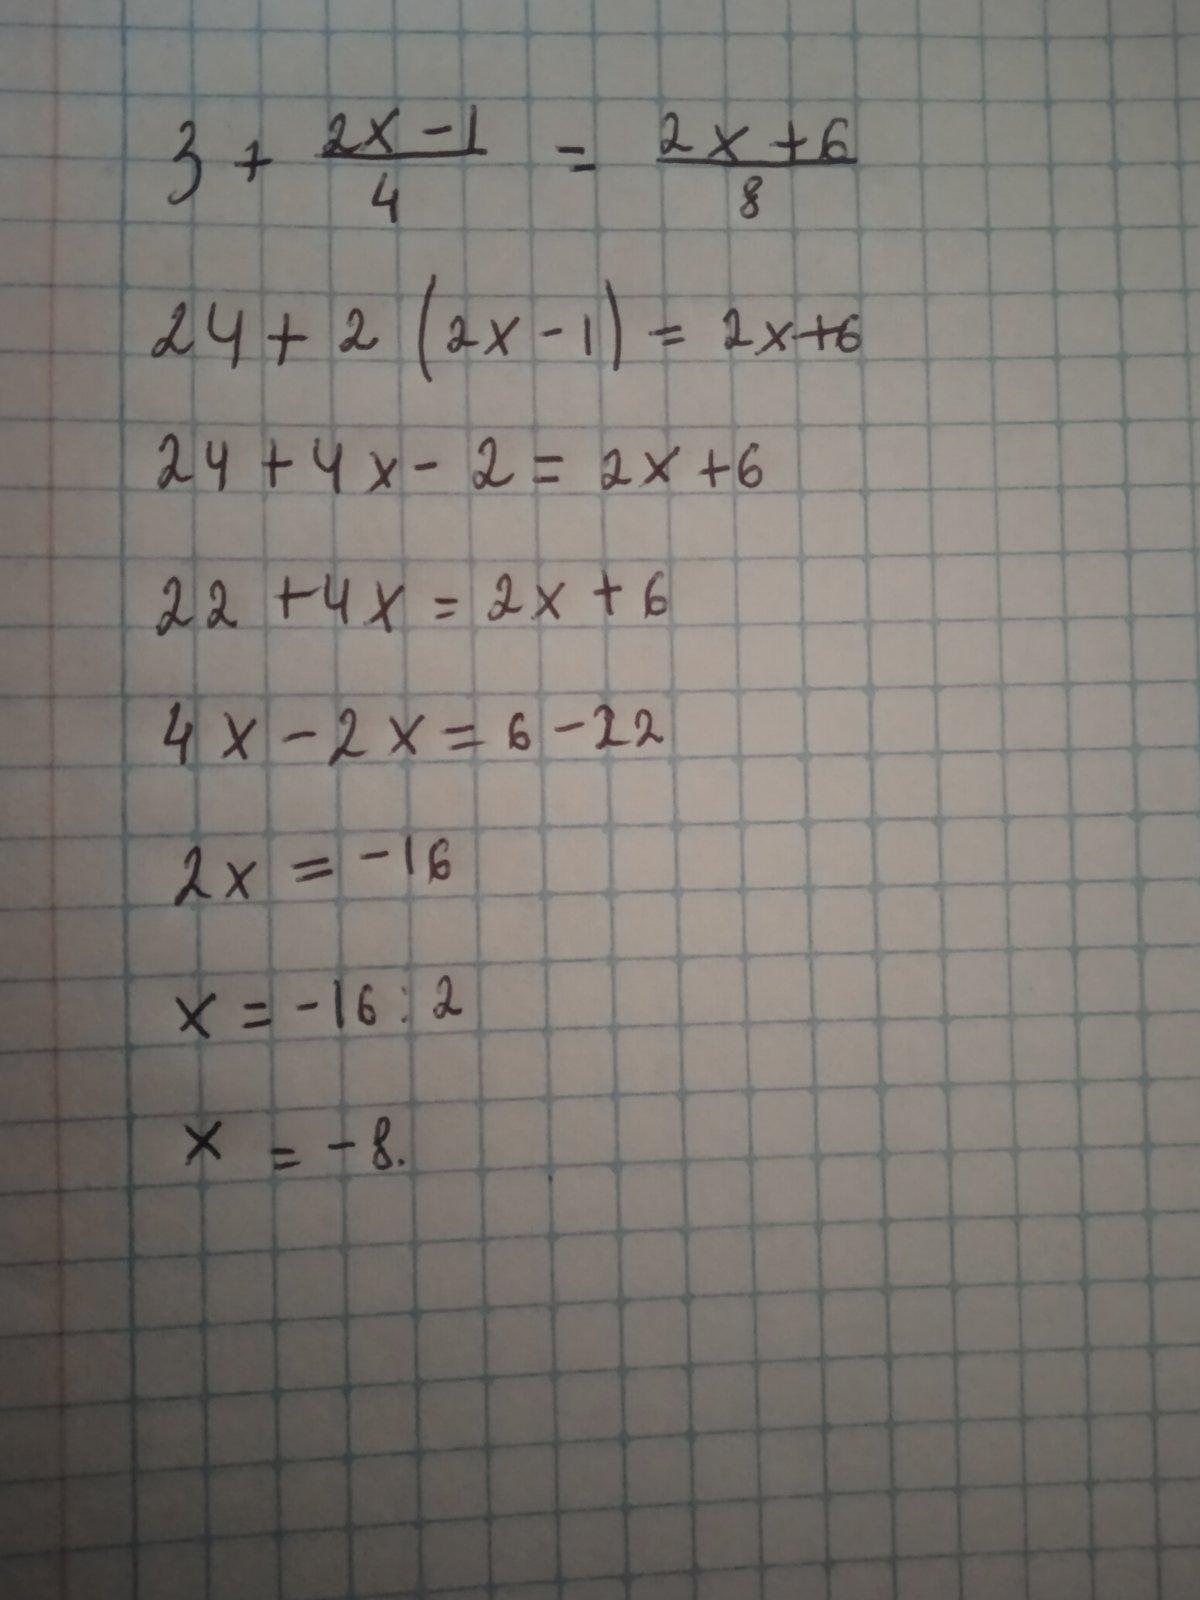 3 + (2x - 1)/4 = (2x + 6)/8
24 + 2 (2x - 1) = 2x + 6
24 + 4x - 2 = 2x + 6
22 + 4x = 2x + 6
4x - 2x = 6 - 22
2x = -16
x = -16 : 2
x = -8.